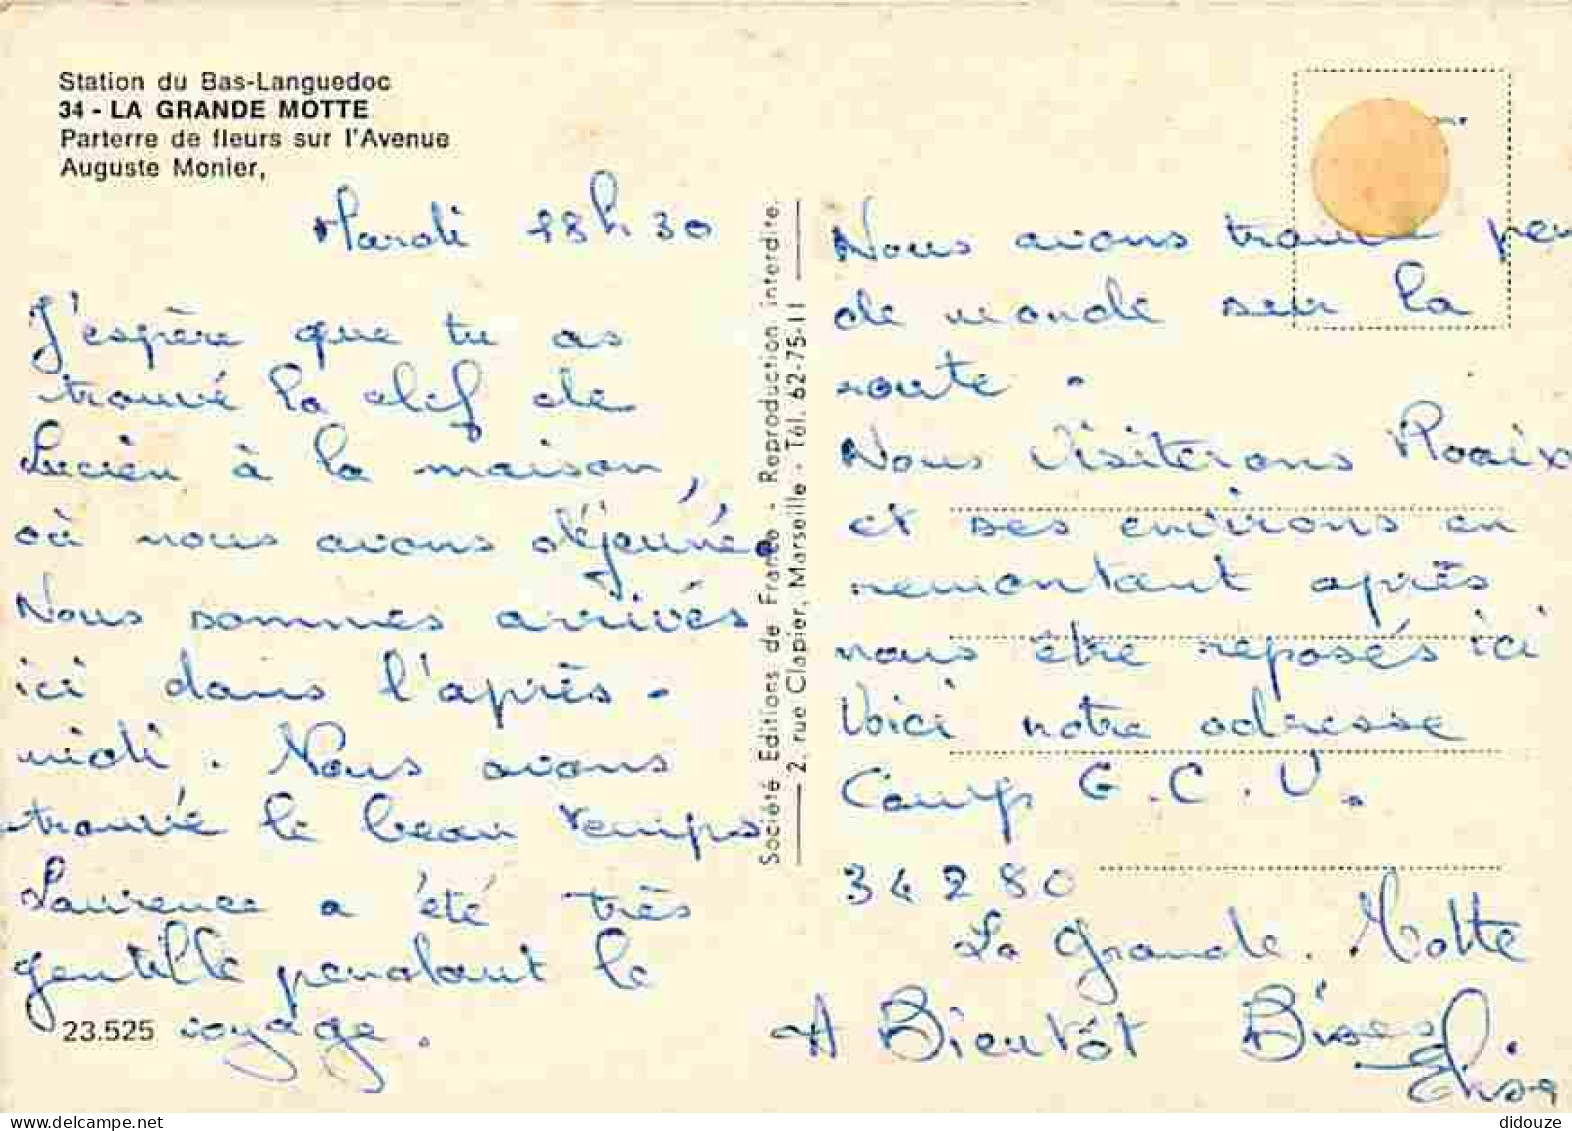 Station du Bas-Languedoc
34 - LA GRANDE MOTTE
Parterre de fleurs sur l'Avenue
Auguste Monier,
Mardi 18h30
J'espère que tu as
trouvé la clef de
Lucien à la maison,
où nous avons déjeuné
Nous sommes arrivés
ici dans l'après-
midi. Nous avons
trouvé le beau temps
Laurence a été très
gentille pendant le
voyage.
23.525
Société Editions de France - Reproduction interdite.
2, rue Clapier, Marseille - Tél. 62-75-11
Nous avons trouvé peu
de monde sur la
route.
Nous visiterons Roaix
et ses environs en
remontant après
nous être reposés ici
Voici notre adresse
Camp G.C.U.
34280
La Grande Motte
A Bientôt Bises
Elisa
delcampe.net
didouze